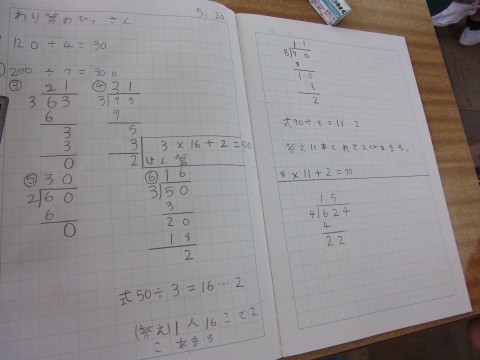 わり算のひっ算
5.20
120÷4=30
2100÷7=300
③ 21
3 63
6
3
3
0
④ 31
3 95
9
5
3
2
3×16+2=50
⑤ 30
2 60
6
0
⑥ 16
3 50
3
20
18
2
式 50÷3=16…2
(答え) 1人16こで2
こあまる
11
8 90
8
10
8
2
式 90÷8=11 2
答え 11
8×11+2=90
15
4 624
4
22